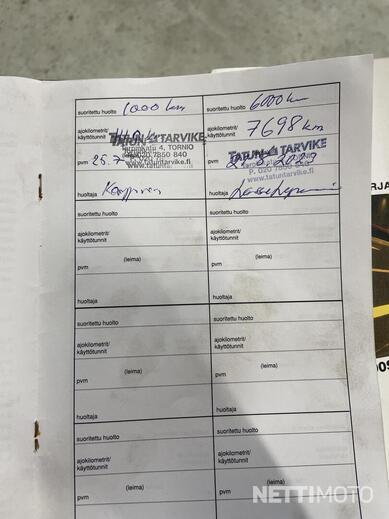 suoritettu huolto 1000 km
ajokilometrit/
käyttötunnit
TATUN TARVIKE
Terminkatu 4, TORNIO
P. 020 7850 840
www.tatuntarvike.fi
pvm 25.7
huoltaja
suoritettu huolto 6000 km
ajokilometrit/
käyttötunnit 7698 km
TATUN TARVIKE
TORNIO
P. 020 7850
www.tatuntarvike.fi
pvm
huoltaja
suoritettu huolto
ajokilometrit/
käyttötunnit
(leima)
pvm
huoltaja
suoritettu huolto
ajokilometrit/
käyttötunnit
(leima)
pvm
huoltaja
suoritettu huolto
ajokilometrit/
käyttötunnit
(leima)
pvm
huoltaja
suoritettu huolto
ajokilometrit/
käyttötunnit
(leima)
pvm
huoltaja
suoritettu huolto
ajokilometrit/
käyttötunnit
(leima)
pvm
suoritettu huolto
ajokilometrit/
käyttötunnit
(leima)
RJA
NETTIMOTO